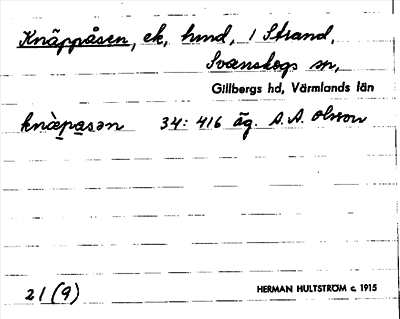 Knäppåsen, ek, hmd, i Strand,
Svanskogs sn,
Gillbergs hd, Värmlands län
knäpasən 34: 416 äg. A. A. Olsson
21 (9)
HERMAN HULTSTRÖM c. 1915